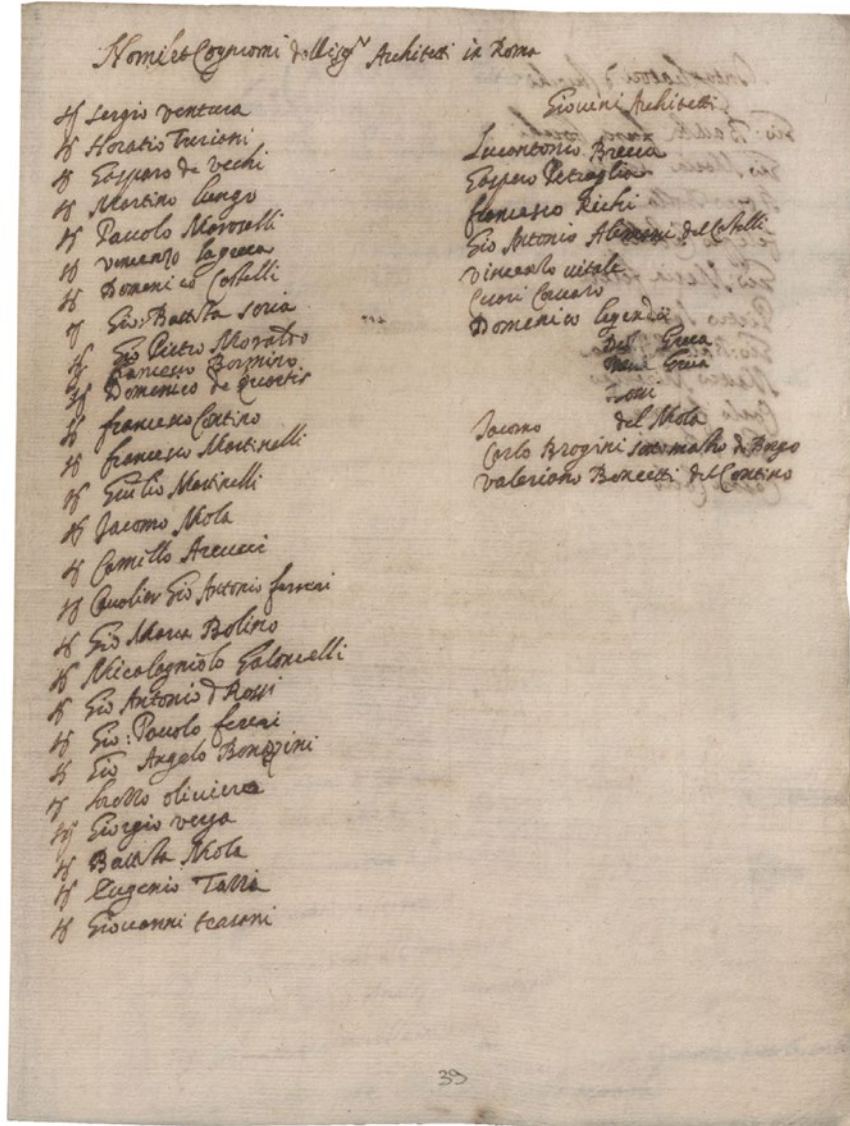 Nomi et Cognomi delli sig.ri Architetti in Roma
Sr Sergio Ventura
Sr Horatio Turiani
Sr Gasparo de Vechi
Sr Martino Lungo
Sr Pauolo Maroscelli
Sr Vincenzo lagreca
Sr Domenico Castelli
Sr Gio: Battista Soria
Sr Gio Pietro Moraldo
Sr francesco Bormino
Sr Domenico de Quartis
Sr francesco Contino
Sr francesco Martinelli
Sr Giulio Martinelli
Sr Jacomo Mola
Sr Camillo Arcucci
Sr Cavolier Gio Antonio ferreri
Sr Gio Maria Bolino
Sr Micalagniolo Galoncelli
Sr Gio Antonio d Rossi
Sr Gio: Pauolo fereri
Sr Gio Angelo Bonazini
Sr oliviera
Sr Giorgio
Sr Battista Mola
Sr Eugenio
Sr Giovanni
Gioveni Architetti
Lucantonio Brecca
Gaspero Petraglia
francesco Richi
Gio Antonio Alemani del Castelli
Vincenzo vitale
Domenico legenda
Greca
Greca
Jacomo del Mola
Carlo Brogini sotto mastro di Borgo
Valeriano Boncetti del Contino
39